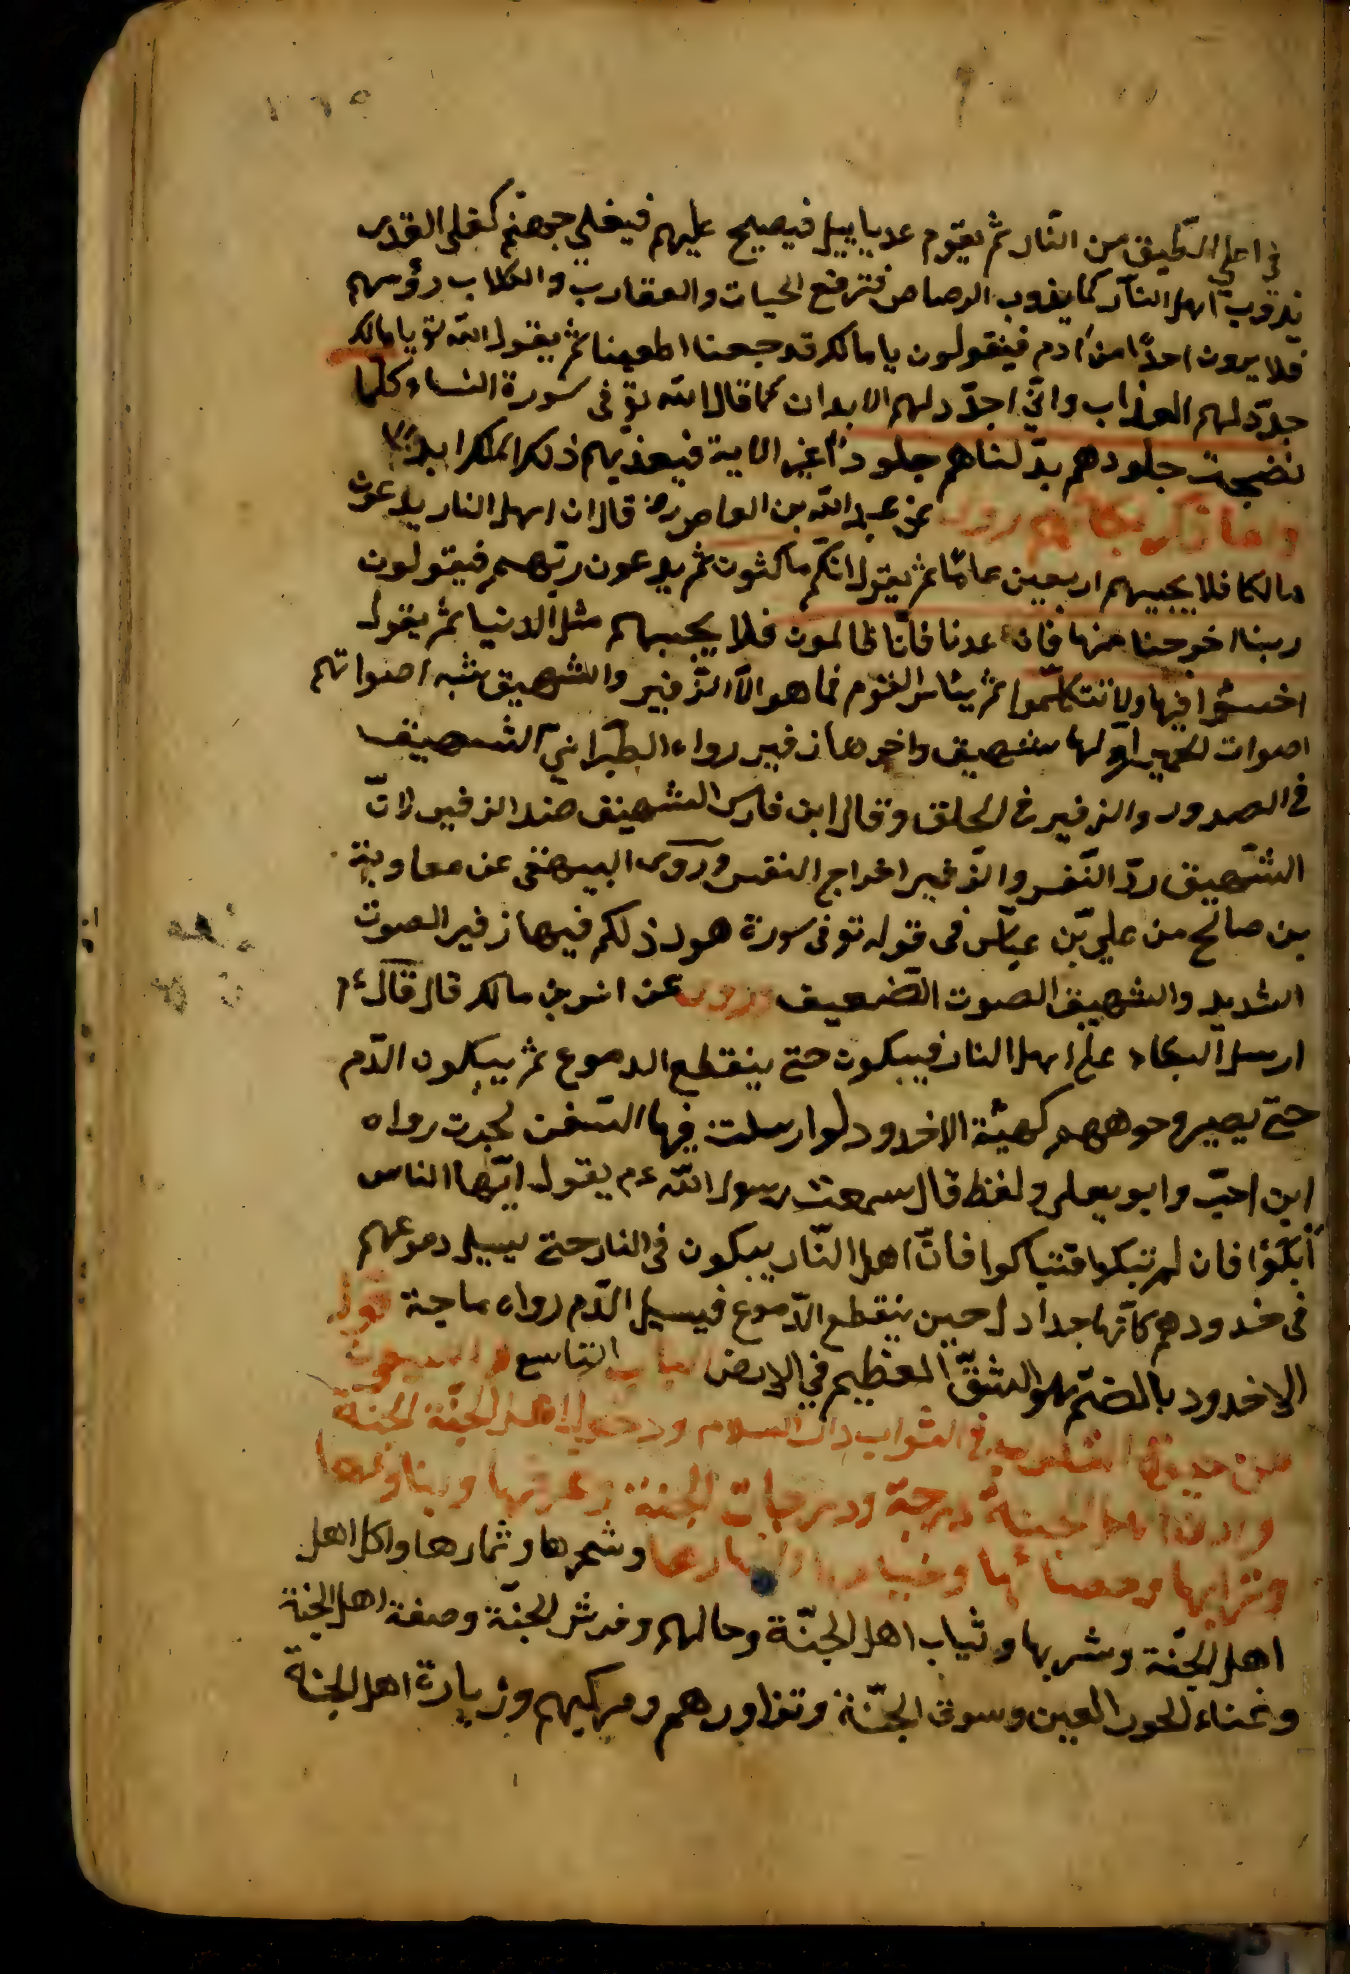 في اعلي الطبق من النّار ثم يقوم عدياييل فيصيح عليهم فيغلي جهنم كغلى القدر
يذوب اهل النّار كما يذوب الرصاص فترفع الحيات والعقارب والكلاب رؤسهم
فلا يرون احدًا من ادم فيقولون يا مالك قد جعنا اطعمنا ثم يقول الله تع يا مالك
جدّد لهم العذاب واني اجدّد لهم الابدان كما قال الله تع فى سورة النساء كلما
نضجت جلودهم بدّلناهم جلودًا غير الاية فيعذبهم ذلك الملك ابدا
واما ذكر بكائهم روى عن عبد الله بن العاص رض قال ان اهل النار يدعون
مالكا فلا يجيبهم اربعين عامًا ثم يقول انكم ماكثون ثم يدعون ربّهم فيقولون
ربنا اخرجنا منها فان عدنا فانّا ظالمون فلا يجيبهم مثل الدنيا ثم يقول
اخسئوا فيها ولا تتكلّموا ثم يئاس القوم فما هو الّا الزّفير والشهيق شبه اصواتهم
اصوات الحمير اولها شهيق واخرها زفير رواه الطبرانيّ الشهيق
في الصدور والزفير في الحلق وقال ابن فارس الشهيق ضد الزفير لانّ
الشّهيق ردّ النّفس والزّفير اخراج النفس وروى البيهقى عن معاوية
بن صالح من علي بن عباس فى قوله تع فى سورة هود ذلك فيها زفير الصوت
الشديد والشهيق الصوت الضّعيف وروى عن انس بن مالك قال قال عم
ارسل البكاء على اهل النار فيبكون حتى ينقطع الدموع ثم يبكون الدّم
حتى يصير وجوههم كهيئة الاخدود لوارسلت فيها السّفن لجرت رواه
ابن احبّ وابو يعلي ولفظ قال سمعت رسول الله عم يقول ايّها الناس
ابكؤا فان لم تبكوا فتباكوا فانّ اهل النّار يبكون فى النار حتى يسيل دموعهم
فى خدودهم كانّها جداول حين ينقطع الدّموع فيسيل الدّم رواه ماجة قوله
الاخدود بالضمّ هو الشقّ العظيم في الارض الباب التاسع والتسعون
من حيوة القلوب فى الثواب دار السلام ودخول اهل الجنّة الجنة
وادنى اهل الجنة درجة ودرجات الجنة وغرفها وبناؤها
وترابها وحصبائها وخيامها وانهارها وشجرها وثمارها واكل اهل
اهل الجنّة وشربها وثياب اهل الجنّة وحالهم وفرش الجنّة وصفة اهل الجنّة
وغناء الحور العين وسوق الجنّة وتزاورهم ومركبهم وزيارة اهل الجنة